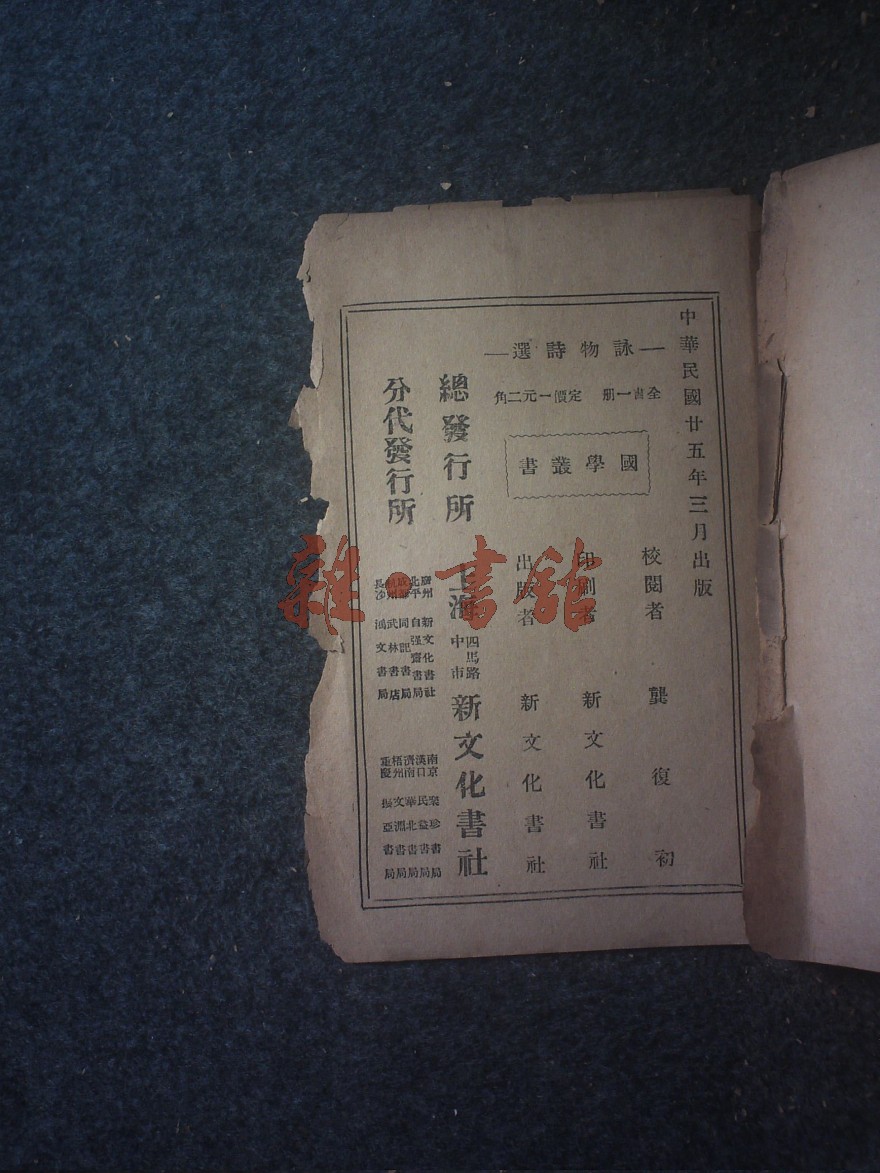 中華民國廿五年三月出版
—詠物詩選—
全書一册 定價一元二角
國學叢書
校閱者 龔復初
印刷者 新文化書社
出版者 新文化書社
總發行所 上海 四馬路中市 新文化書社
分代發行所
廣州 新文化書社
北平 自强書局
成都 同記書局
杭州 武林書店
長沙 鴻文書局
南京 聚珍書局
漢口 民益書局
濟南 華北書局
梧州 文淵書局
重慶 亞書局
雜·書館